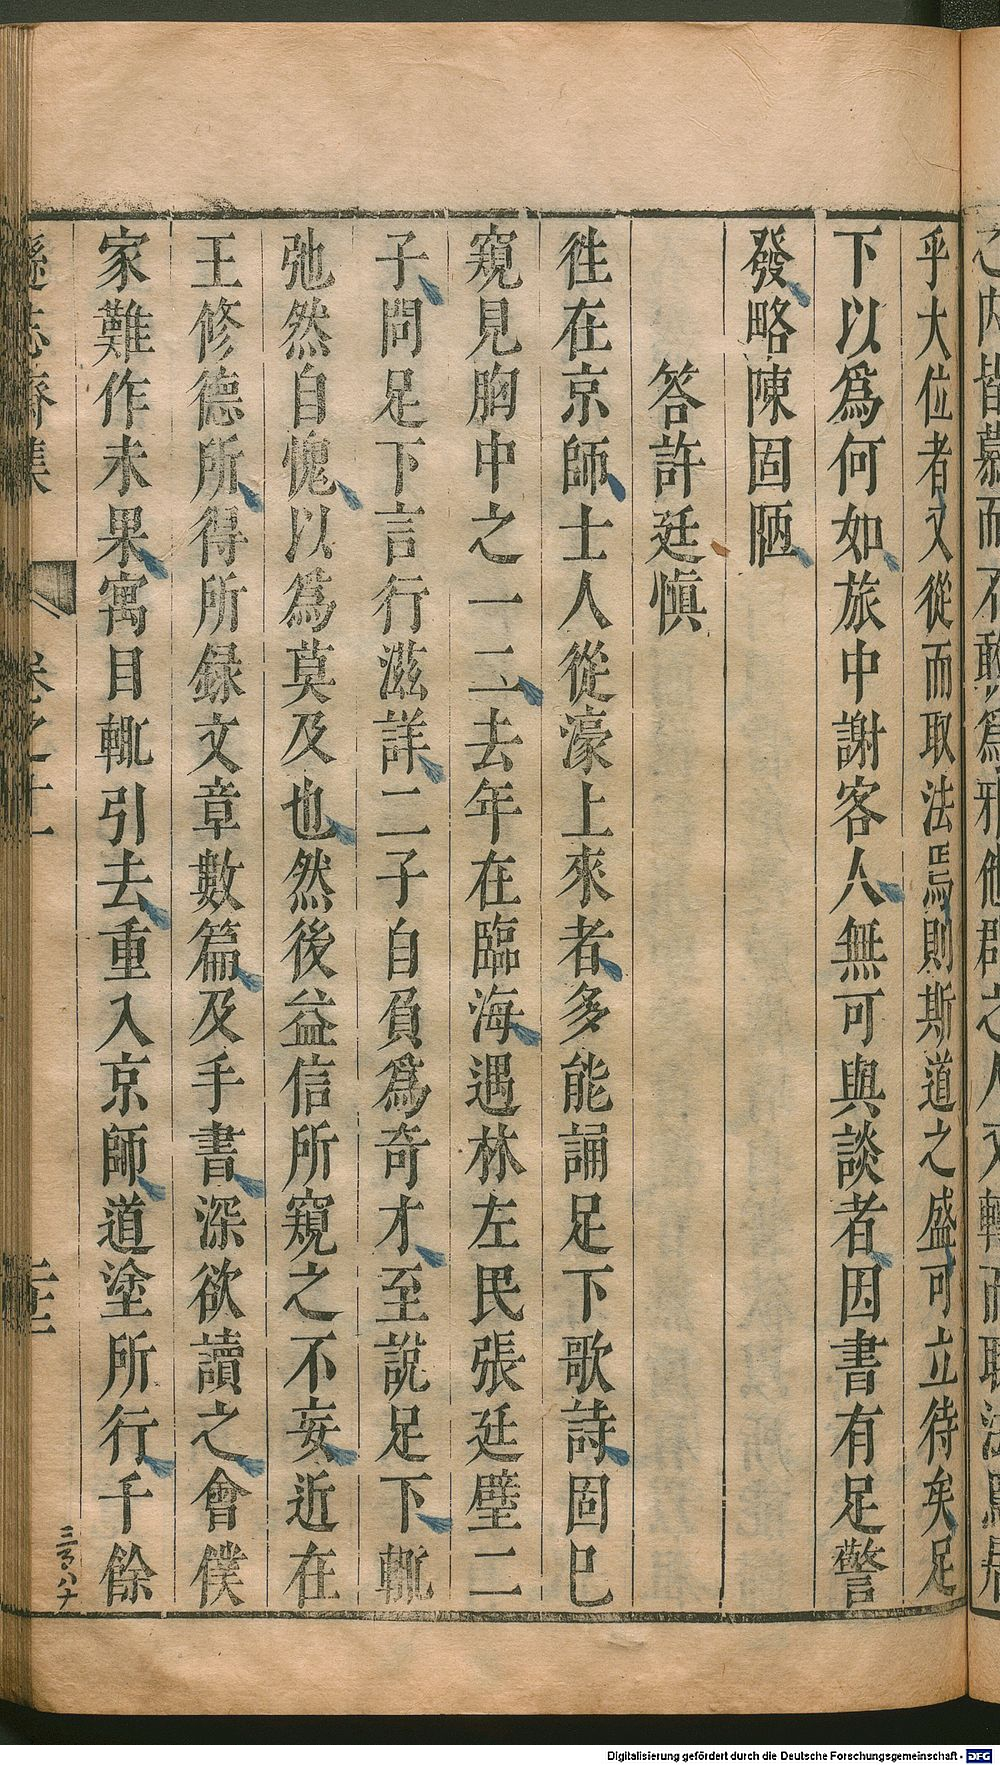 之內皆慕而不敢爲邪僻之人又轉而取法焉
乎大位者又從而取法焉則斯道之盛可立待矣足
下以爲何如旅中謝客人無可與談者因書有足警
發略陳固陋
答許廷愼
徃在京師士人從濠上來者多能誦足下歌詩固巳
窺見胸中之一二去年在臨海遇林左民張廷璧二
子問足下言行滋詳二子自負爲奇才至說足下輒
弛然自愧以爲莫及也然後益信所窺之不妄近在
王修德所得所録文章數篇及手書深欲讀之會僕
家難作未果寓目輒引去重入京師道塗所行千餘
遜志齋集
卷之十一
二十三
Digitalisierung gefördert durch die Deutsche Forschungsgemeinschaft - DFG